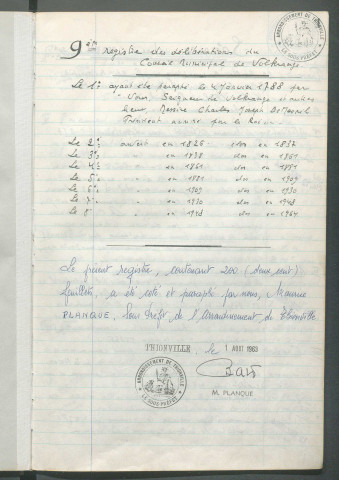 9ème registre des délibérations du
Conseil Municipal de Volkrange
Le 1er ayant été paraphé le 4 Janvier 1788 par
Nous Seigneur de Volkrange et autres
lieux, Messire Charles Joseph
Le 2e ouvert en 1826 clos en 1837
Le 3e " en 1838 clos en 1861
Le 4e " en 1861 clos en 1881
Le 5e " en 1881 clos en 1909
Le 6e " en 1909 clos en 1930
Le 7e " en 1930 clos en 1948
Le 8 " en 1948 clos en 1964
Le présent registre, contenant 200 (deux cent)
feuillets, a été coté et paraphé par nous, Maurice
PLANQUE, Sous Préfet de l'Arrondissement de Thionville
THIONVILLE le 1 AOUT 1963
ARRONDISSEMENT DE THIONVILLE
LE SOUS-PREFET
M. PLANQUE